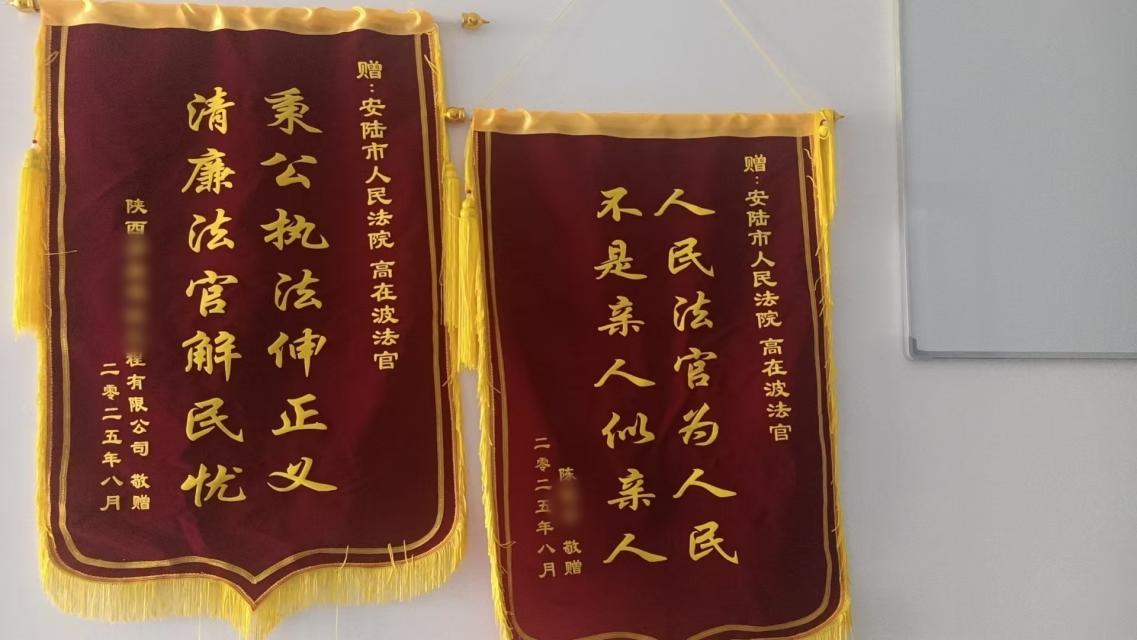 赠：安陆市人民法院 高在波法官
秉公执法伸正义
清廉法官解民忧
陕西程有限公司 敬赠
二零二五年八月
赠：安陆市人民法院 高在波法官
人民法官为人民
不是亲人似亲人
陈 敬赠
二零二五年八月